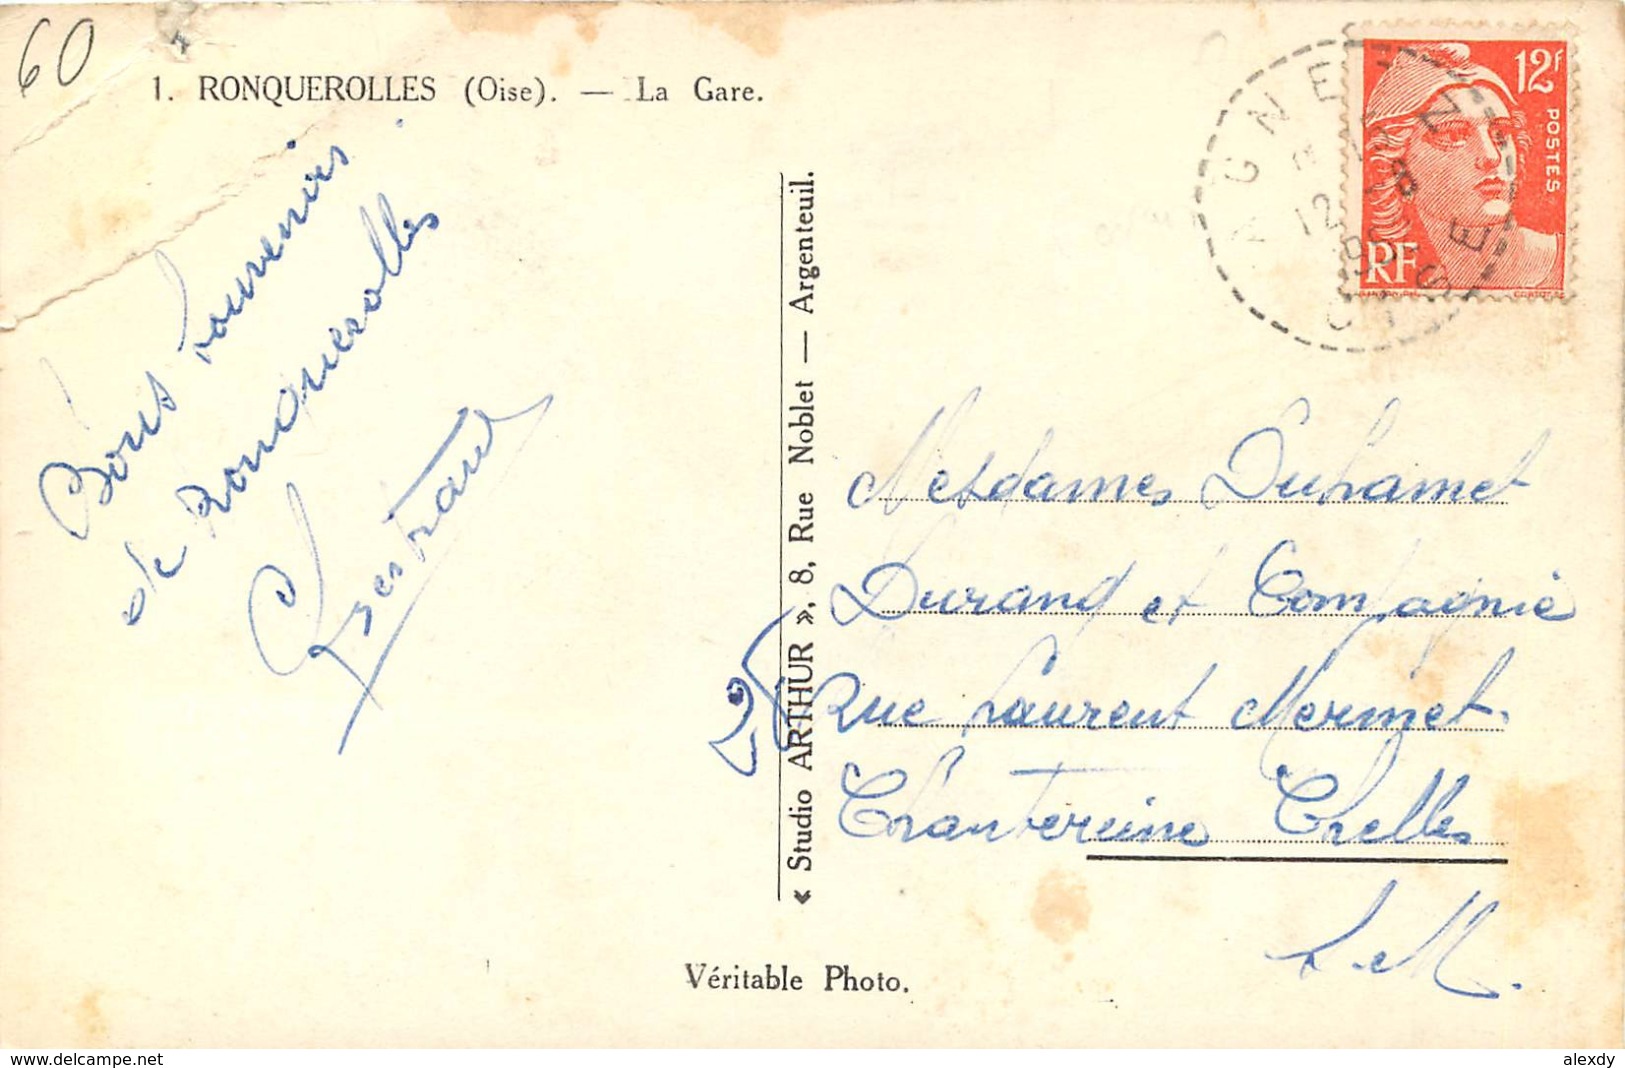 60
1. RONQUEROLLES (Oise). — La Gare.
Bons souvenirs
de Ronquerolles
« Studio ARTHUR », 8, Rue Noblet — Argenteuil.
12f
POSTES
RF
AGNETZ
OISE
12
Mesdames Duhamet
Durand et Compagnie
Rue Laurent Mermet.
Chantereine Chelles
S. et M.
Véritable Photo.
www.delcampe.net
alexdy